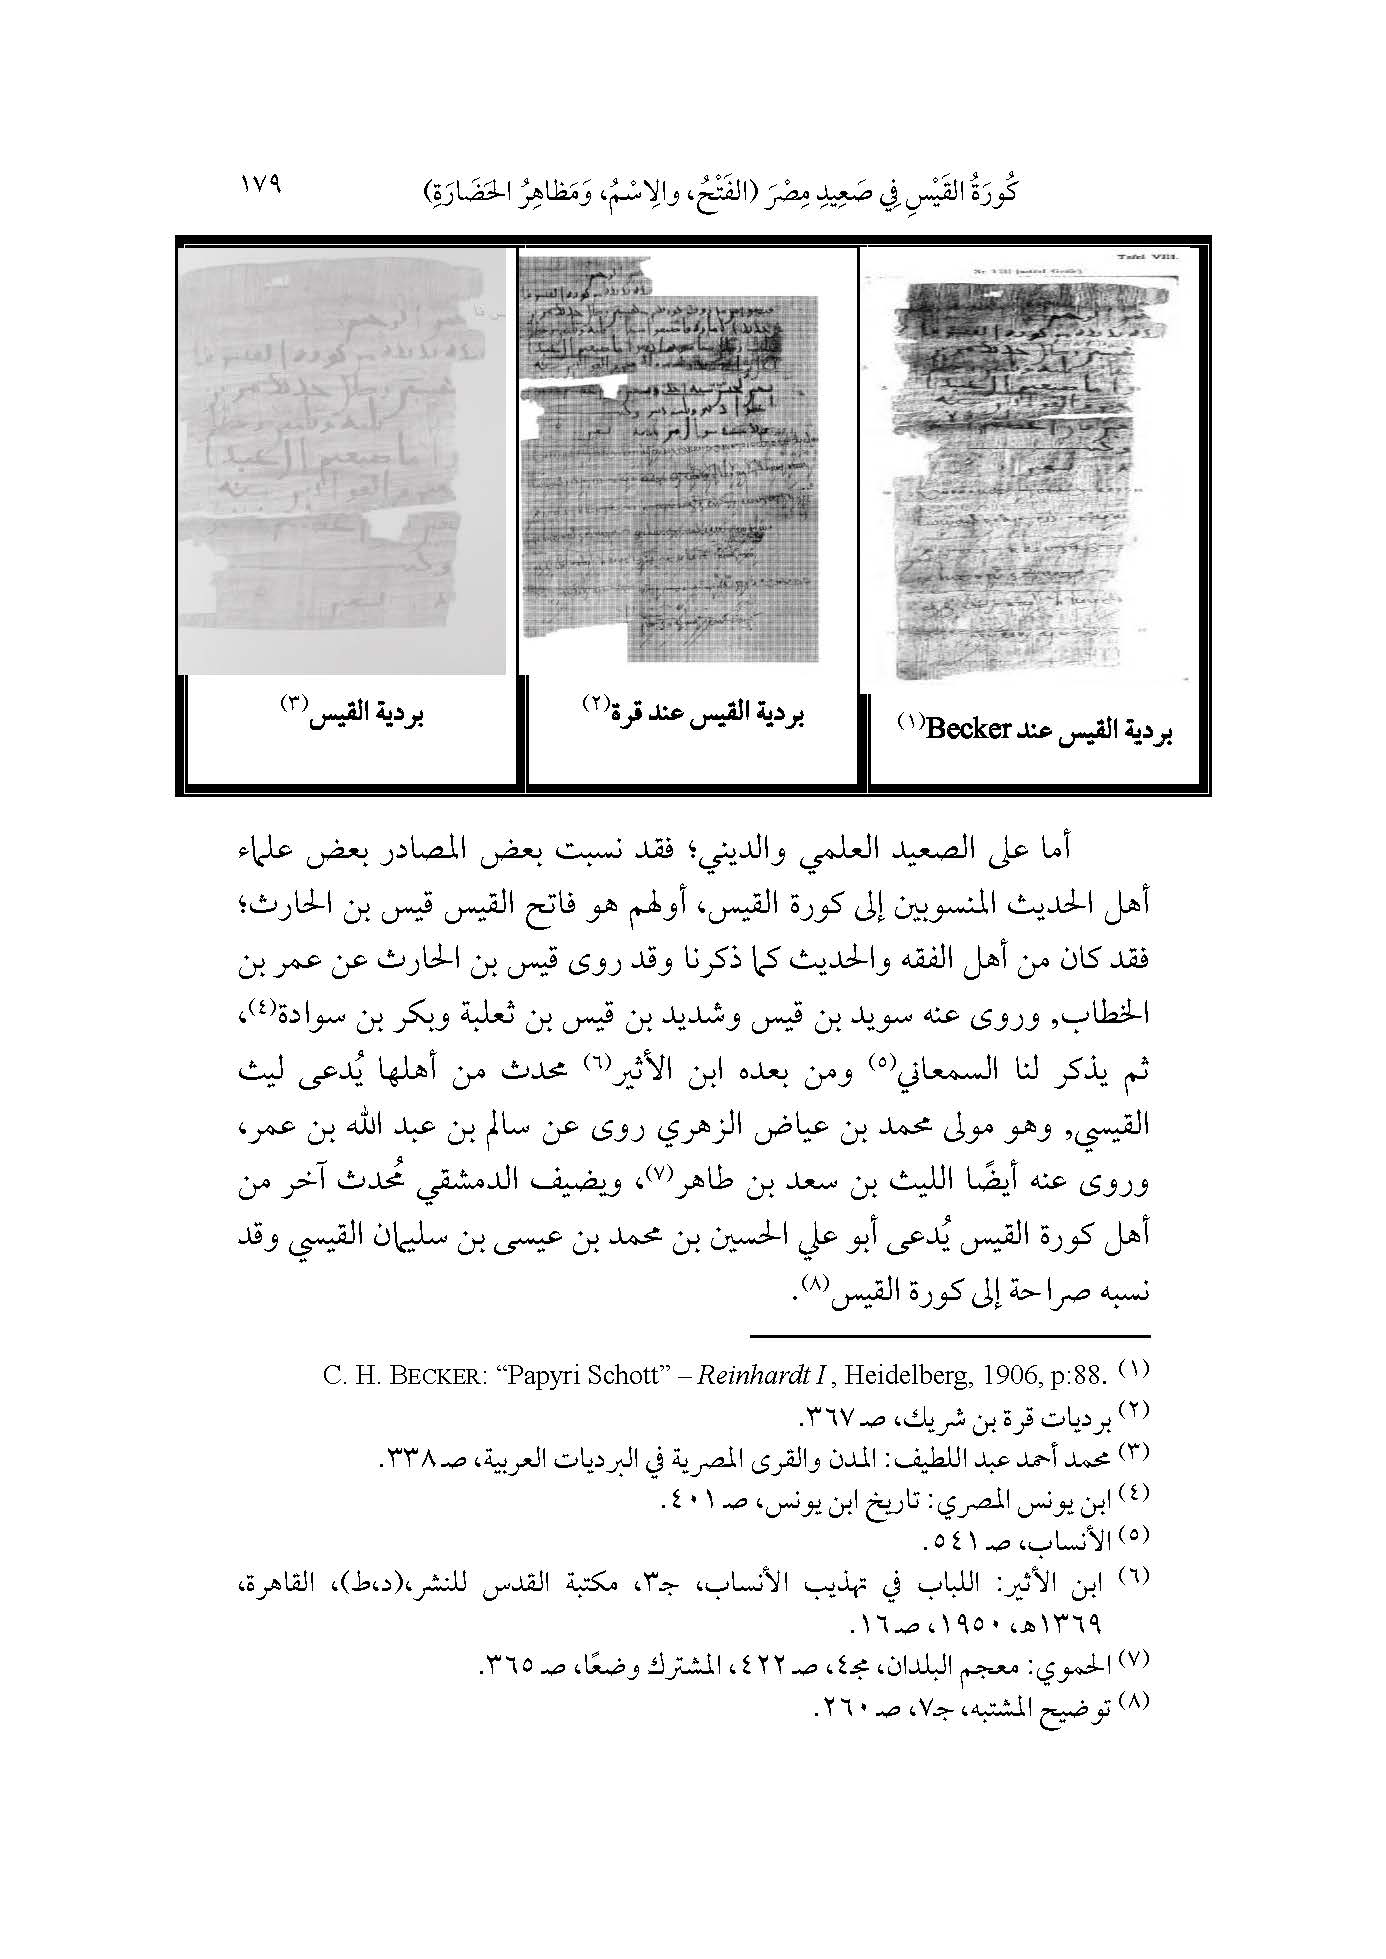 كُورَةُ القَيْسِ فِي صَعِيدِ مِصْرَ (الفَتْحُ، والِاسْمُ، وَمَظاهِرُ الحَضَارَةِ) ١٧٩
Tafel VIII.
بردية القيس عند Becker(١)
بردية القيس عند قرة(٢)
بردية القيس(٣)
أما على الصعيد العلمي والديني؛ فقد نسبت بعض المصادر بعض علماء
أهل الحديث المنسوبين إلى كورة القيس، أولهم هو فاتح القيس قيس بن الحارث؛
فقد كان من أهل الفقه والحديث كما ذكرنا وقد روى قيس بن الحارث عن عمر بن
الخطاب, وروى عنه سويد بن قيس وشديد بن قيس بن ثعلبة وبكر بن سوادة(٤)،
ثم يذكر لنا السمعاني(٥) ومن بعده ابن الأثير(٦) محدث من أهلها يُدعى ليث
القيسي, وهو مولى محمد بن عياض الزهري روى عن سالم بن عبد الله بن عمر،
وروى عنه أيضًا الليث بن سعد بن طاهر(٧)، ويضيف الدمشقي مُحدث آخر من
أهل كورة القيس يُدعى أبو علي الحسين بن محمد بن عيسى بن سليمان القيسي وقد
نسبه صراحة إلى كورة القيس(٨).
(١) C. H. BECKER: “Papyri Schott” – Reinhardt I , Heidelberg, 1906, p:88.
(٢) برديات قرة بن شريك، صـ٣٦٧.
(٣) محمد أحمد عبد اللطيف: المدن والقرى المصرية في البرديات العربية، صـ٣٣٨.
(٤) ابن يونس المصري: تاريخ ابن يونس، صـ٤٠١.
(٥) الأنساب، صـ٥٤١.
(٦) ابن الأثير: اللباب في تهذيب الأنساب، جـ٣، مكتبة القدس للنشر،(د،ط)، القاهرة،
١٣٦٩هـ، ١٩٥٠، صـ١٦.
(٧) الحموي: معجم البلدان، مجـ٤، صـ٤٢٢، المشترك وضعًا، صـ٣٦٥.
(٨) توضيح المشتبه، جـ٧، صـ٢٦٠.